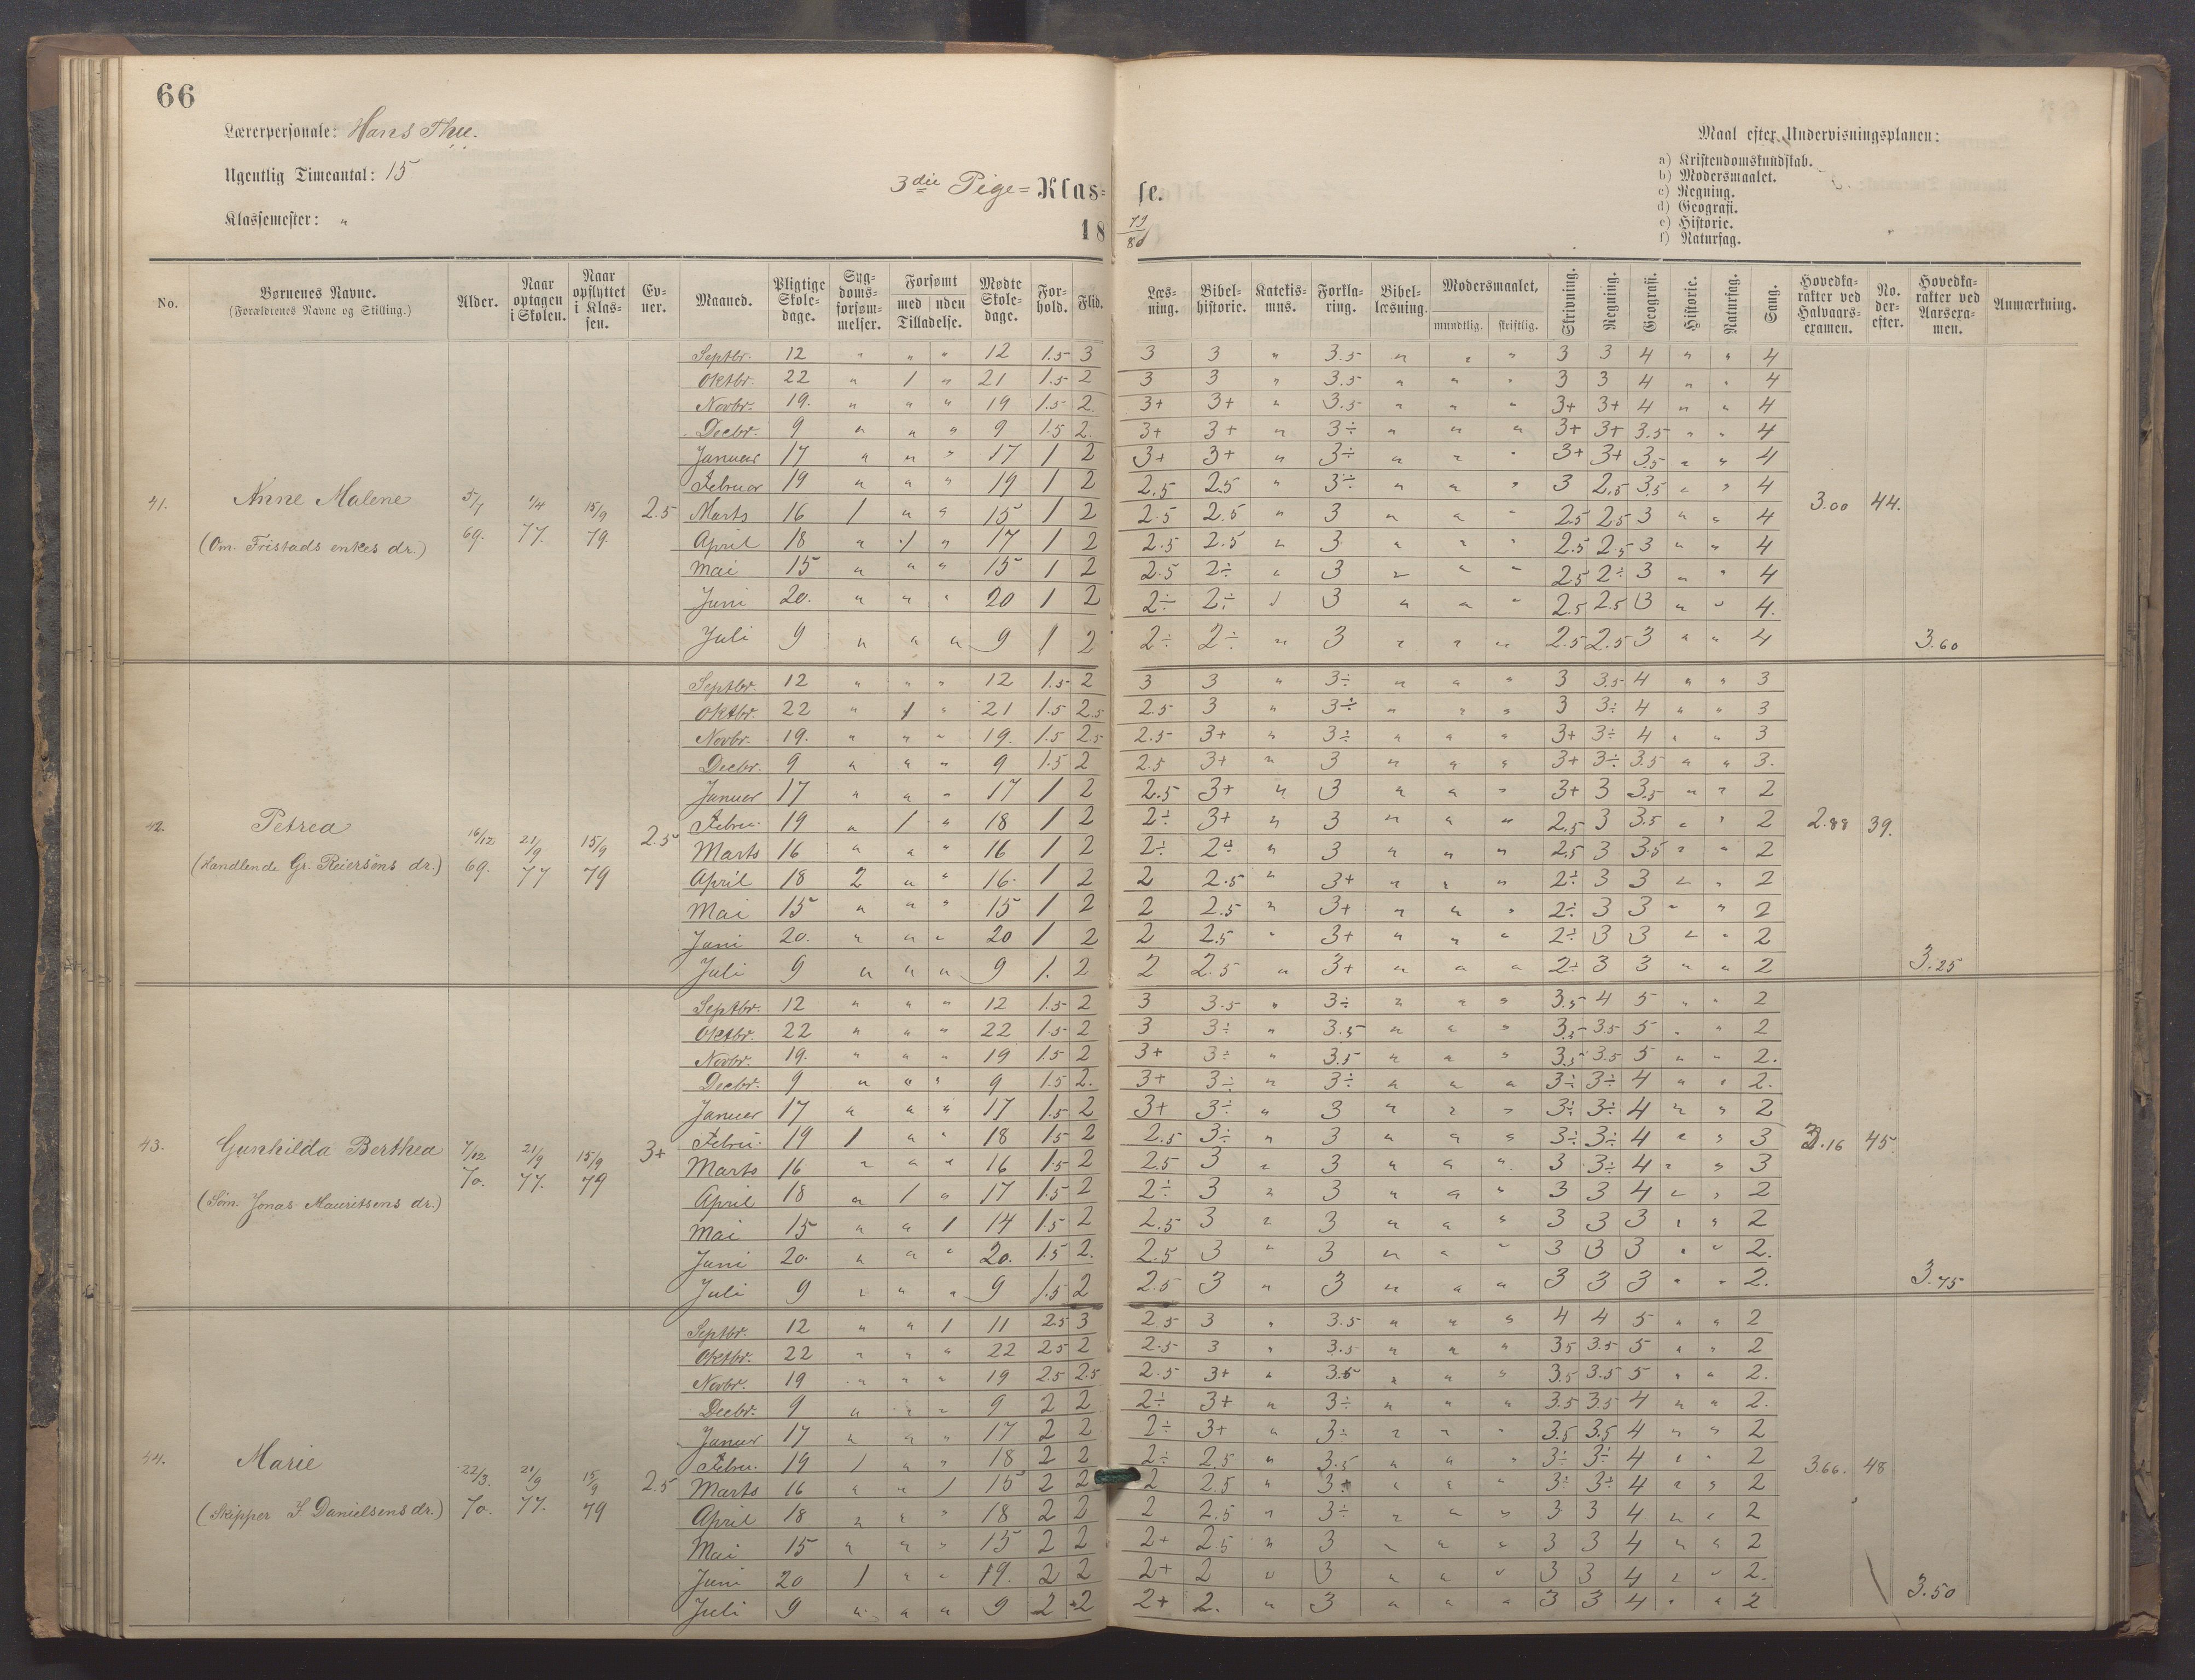 66
Lærerpersonale: Hans Thu.
Ugentlig Timeantal: 15
Klassemester: "
3die Pige= Klas= se.
18 79/80
Maal efter Undervisningsplanen:
a) Kristendomskundskab.
b) Modersmaalet.
c) Regning.
d) Geografi.
e) Historie.
f) Naturfag.
No. | Børnenes Navne. (Forældrenes Navne og Stilling.) | Alder. | Naar optagen i Skolen. | Naar opflyttet i Klassen. | Evner. | Maaned. | Pligtige Skoledage. | Sygdomsforsømmelser. | Forsømt med uden Tilladelse. | Mødte Skoledage. | Forhold. | Flid. | Læsning. | Bibelhistorie. | Katekismus. | Forklaring. | Bibellæsning. | Modersmaalet, mundtlig. skriftlig. | Skrivning. | Regning. | Geografi. | Historie. | Naturfag. | Sang. | Hovedkarakter ved Halvaarsexamen. | No. derefter. | Hovedkarakter ved Aarsexamen. | Anmærkning.
41. Anne Malene (Om. Fristads enkes dr.) 5/7 69. 1/4 77. 15/9 79. 2.5
Septbr. 12 " " " 12 1.5 3 3 3 " 3.5 " " " 3 3 4 " " 4
Oktbr. 22 " 1 " 21 1.5 2 3 3 " 3.5 " " " 3 3 4 " " 4
Novbr. 19. " " " 19 1.5 2. 3+ 3+ " 3.5 " " " 3+ 3+ 4 " " 4
Decbr. 9 " " " 9 1.5 2. 3+ 3+ " 3÷ " " " 3+ 3+ 3.5 " " 4
Januar 17 " " " 17 1 2 3+ 3+ " 3÷ " " " 3+ 3+ 3.5 " " 4
Februar 19 " " " 19 1 2 2.5 2.5 " 3÷ " " " 3 2.5 3.5 " " 4
Marts 16 1 " " 15 1 2 2.5 2.5 " 3 " " " 2.5 2.5 3 " " 4 3.00 44.
April 18 " 1 " 17 1 2 2.5 2.5 " 3 " " " 2.5 2.5 3 " " 4
Mai 15 " " " 15 1 2 2.5 2÷ " 3 " " " 2.5 2÷ 3 " " 4
Juni 20. " " " 20 1 2 2÷ 2÷ " 3 " " " 2.5 2.5 3 " " 4.
Juli 9 " " " 9 1 2 2÷ 2÷ " 3 " " " 2.5 2.5 3 " " 4 3.60
42. Petrea (Handlende Gr. Reiersöns dr.) 16/12 69. 21/9 77 15/9 79 2.5
Septbr. 12 " " " 12 1.5 2 3 3 " 3÷ " " " 3 3.5 4 " " 3
Oktbr. 22 " 1 " 21 1.5 2.5 2.5 3 " 3÷ " " " 3 3÷ 4 " " 3
Novbr. 19. " " " 19. 1.5 2.5 2.5 3+ " 3÷ " " " 3+ 3÷ 4 " " 3
Decbr. 9 " " " 9 1.5 2 2.5 3+ " 3 " " " 3+ 3÷ 3.5 " " 3.
Januar 17 " " " 17 1 2 2.5 3+ " 3 " " " 3+ 3 3.5 " " 2
Febru. 19 " 1 " 18 1 2 2÷ 3+ " 3 " " " 2.5 3 3.5 " " 2 2.88 39.
Marts 16 " " " 16 1 2 2÷ 2÷ " 3 " " " 2.5 3 3.5 " " 2
April 18 2 " " 16. 1 2 2 2.5 " 3+ " " " 2÷ 3 3 " " 2
Mai 15 " " " 15 1 2 2 2.5 " 3+ " " " 2÷ 3 3 " " 2
Juni 20. " " " 20 1 2 2 2.5 " 3+ " " " 2÷ 3 3 " " 2
Juli 9 " " " 9 1. 2 2 2.5 " 3+ " " " 2÷ 3 3 " " 2 3.25
43. Gunhilda Berthea (Söm. Jonas Mauritsens dr.) 7/12 70. 21/9 77. 15/9 79 3+
Septbr. 12 " " " 12 1.5 2 3 3.5 " 3÷ " " " 3.5 4 5 " " 2
Oktbr. 22 " " " 22 1.5 2 3 3÷ " 3.5 " " " 3.5 3.5 5 " " 2
Novbr. 19. " " " 19 1.5 2 3+ 3÷ " 3.5 " " " 3.5 3.5 5 " " 2.
Decbr. 9 " " " 9 1.5 2. 3+ 3÷ " 3÷ " " " 3÷ 3÷ 4 " " 2.
Januar 17 " " " 17 1.5 2 3+ 3÷ " 3 " " " 3÷ 3÷ 4 " " 2
Febru. 19 1 " " 18 1.5 2 2.5 3÷ " 3 " " " 3÷ 3÷ 4 " " 3 3.16 45.
Marts 16 " " " 16 1.5 2 2.5 3 " 3 " " " 3 3÷ 4 " " 3
April 18 " 1 " 17 1.5 2 2÷ 3 " 3 " " " 3 3 4 " " 2
Mai 15 " " 1 14 1.5 2 2.5 3 " 3 " " " 3 3 3 " " 2
Juni 20. " " " 20. 1.5 2. 2.5 3 " 3 " " " 3 3 3 " " 2.
Juli 9 " " " 9 1.5 2 2.5 3 " 3 " " " 3 3 3 " " 2. 3.75
44. Marie (Skipper S. Danielsens dr.) 22/3. 70. 21/9 77. 15/9 79 2.5
Septbr. 12 " " 1 11 2.5 3 2.5 3 " 3.5 " " " 4 4 5 " " 2
Oktbr. 22 " " " 22 2.5 2 2.5 3 " 3.5 " " " 3.5 3.5 5 " " 2
Novbr. 19 " " " 19 2.5 2.5 2.5 3+ " 3.5 " " " 3.5 3.5 5 " " 2.
Decbr. 9 " " " 9 2 2 2÷ 3+ " 3÷ " " " 3.5 3.5 4 " " 2.
Januar 17 " " " 17 2 2 2÷ 3+ " 3÷ " " " 3.5 3.5 4 " " 2
Febru. 19 1 " " 18 2 2 2÷ 2.5 " 3.5 " " " 3÷ 3÷ 4 " " 2 3.66. 48
Marts 16 " " 1 15 2 2 2 2.5 " 3+ " " " 3÷ 3÷ 4 " " 2
April 18 " " " 18 2 2 2 2.5 " 3÷ " " " 3 3 4 " " 2
Mai 15 " " " 15 2 2 2+ 2.5 " 3 " " " 3 3 4 " " 2
Juni 20 1 " " 19. 2 2 2+ 2 " 3 " " " 3 3 4 " " 2.
Juli 9 " " " 9 2 2 2+ 2. " 3 " " " 3 3 4 " " 2 3.50